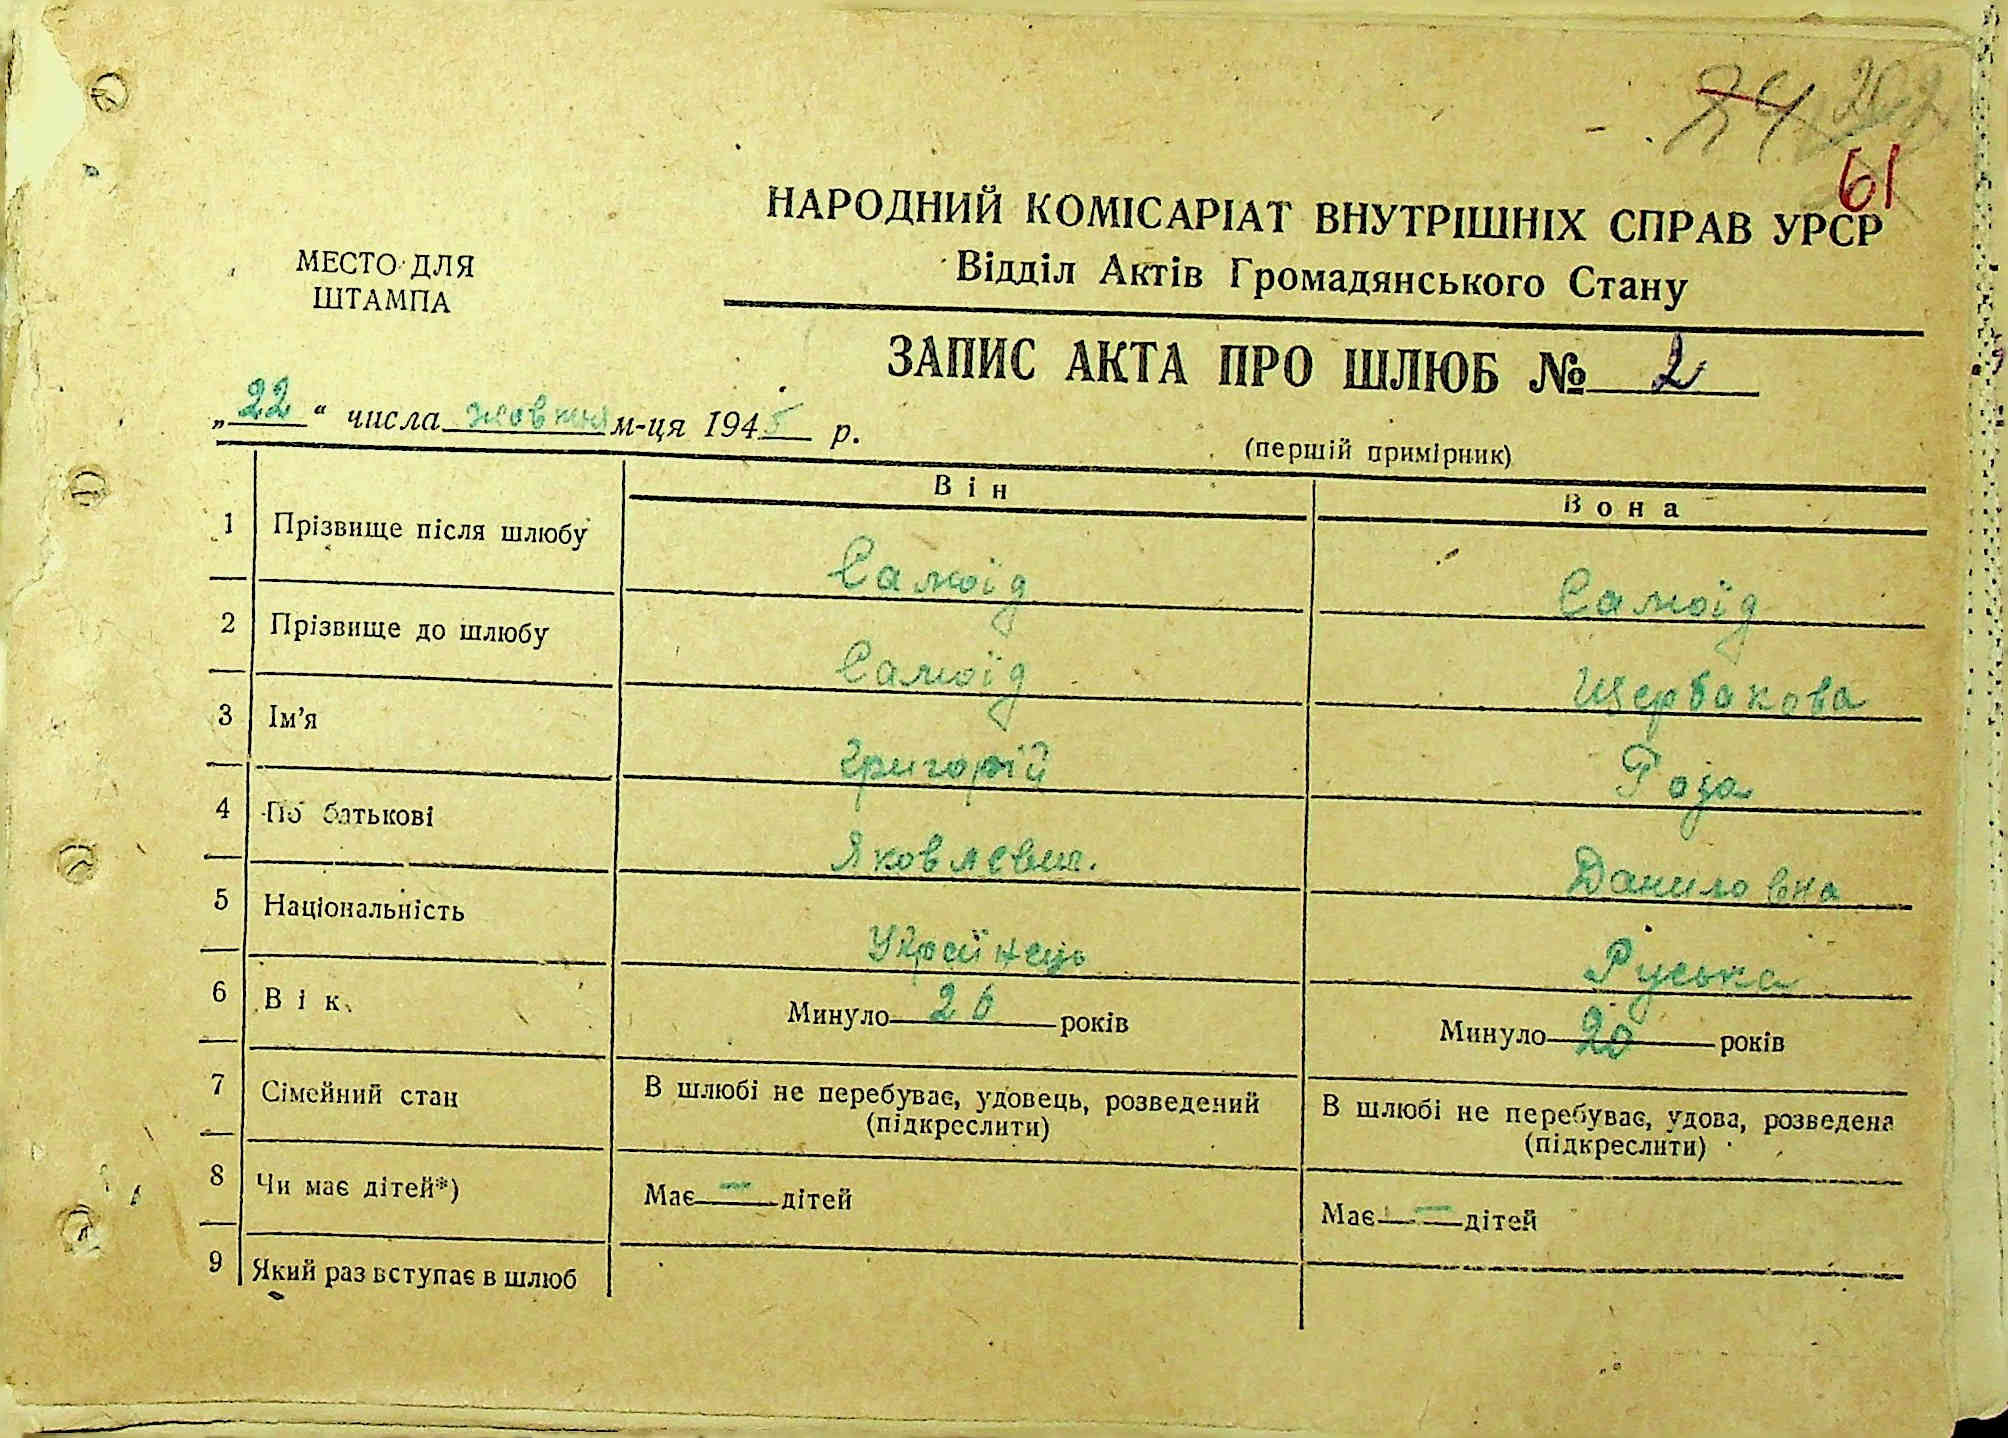 61
НАРОДНИЙ КОМІСАРІАТ ВНУТРІШНІХ СПРАВ УРСР
Відділ Актів Громадянського Стану
МЕСТО ДЛЯ
ШТАМПА
ЗАПИС АКТА ПРО ШЛЮБ № 2
„22“ числа жовтня м-ця 1945 р.
(першій примірник)
Він Вона
1 Прізвище після шлюбу Самоїд Самоїд
2 Прізвище до шлюбу Самоїд Щербакова
3 Ім’я Григорій Роза
4 По батькові Яковлевич. Даниловна
5 Національність Українець Руська
6 Вік Минуло 26 років Минуло 20 років
7 Сімейний стан В шлюбі не перебуває, удовець, розведений (підкреслити) В шлюбі не перебуває, удова, розведена (підкреслити)
8 Чи має дітей*) Має — дітей Має — дітей
9 Який раз вступає в шлюб